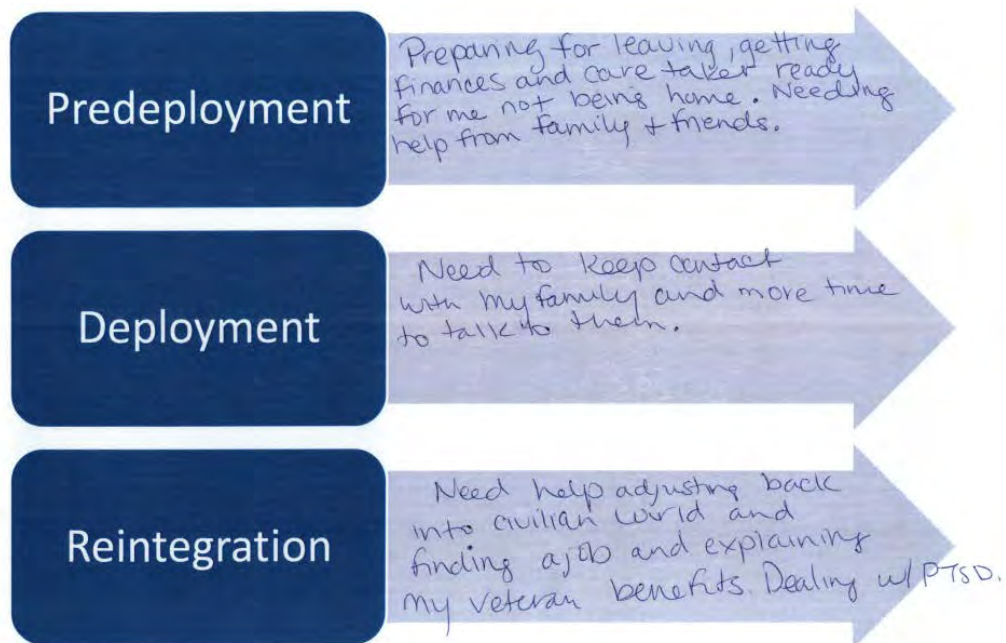 Predeployment
Preparing for leaving, getting
finances and care taker ready
for me not being home. Needing
help from family + friends.
Deployment
Need to keep contact
with my family and more time
to talk to them.
Reintegration
Need help adjusting back
into civilian world and
finding a job and explaining
my veteran benefits. Dealing w/ PTSD.